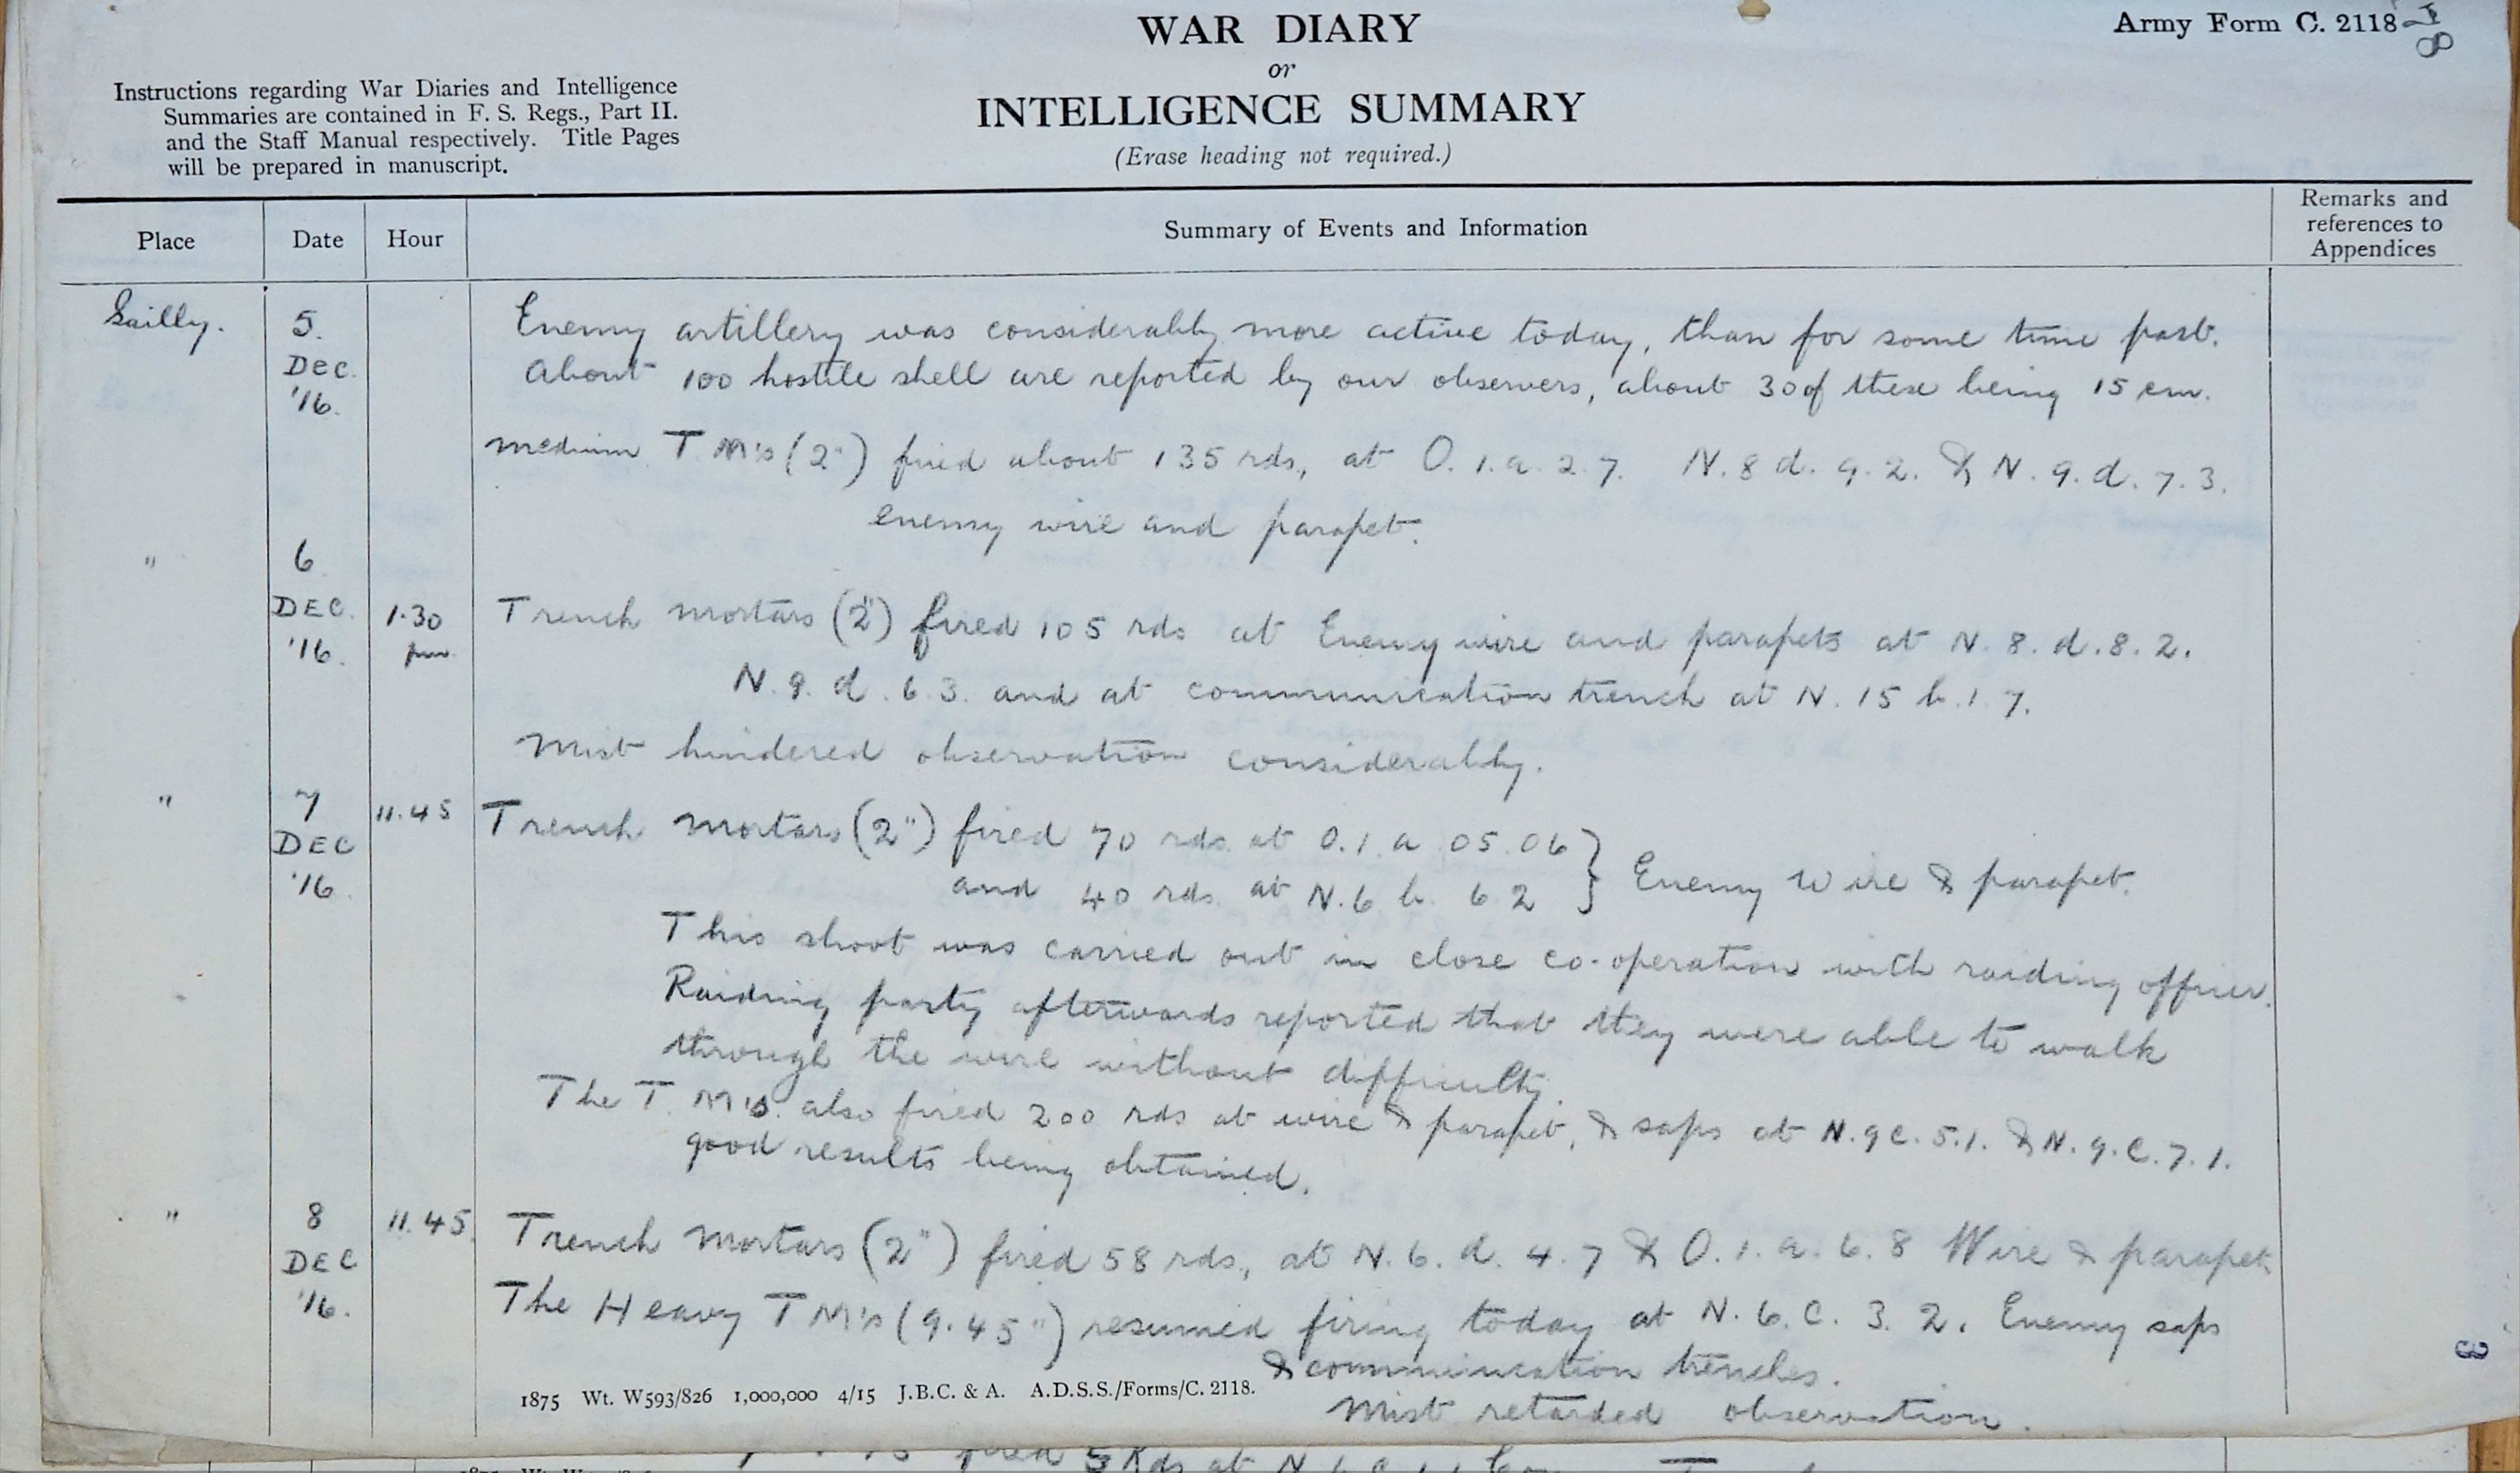 WAR DIARY
or
INTELLIGENCE SUMMARY
(Erase heading not required.)
Army Form C. 2118
Instructions regarding War Diaries and Intelligence
Summaries are contained in F. S. Regs., Part II.
and the Staff Manual respectively. Title Pages
will be prepared in manuscript.
Place Date Hour Summary of Events and Information Remarks and references to Appendices
Sailly. 5. Enemy artillery was considerably more active today, than for some time past.
Dec. About 100 hostile shell are reported by our observers, about 30 of these being 15 cm.
'16.
Medium T.M's (2") fired about 135 rds., at O.1.a.2.7. N.8d.9.2. & N.9.d.7.3.
enemy wire and parapet.
" 6
DEC. 1.30 Trench mortars (2") fired 105 rds at Enemy wire and parapets at N.8.d.8.2.
'16. pm. N.9.d.6.3. and at communication trench at N.15 b.1.7.
Mist hindered observation considerably.
" 7 11.45 Trench mortars (2") fired 70 rds. at O.1.a.05.06
DEC and 40 rds. at N.6 b. 6 2 } Enemy Wire & parapet.
'16.
This shoot was carried out in close co-operation with raiding officer.
Raiding party afterwards reported that they were able to walk
through the wire without difficulty.
The T.M's. also fired 200 rds at wire & parapet, & saps at N.9c.5.1. & N.9.c.7.1.
good results being obtained.
" 8 11.45. Trench Mortars (2") fired 58 rds., at N.6.d.4.7 & O.1.a.6.8 Wire & parapet
DEC
'16. The Heavy T M's (9.45") resumed firing today at N.6.c.3.2. Enemy saps
& communication trenches.
1875 Wt. W593/826 1,000,000 4/15 J.B.C. & A. A.D.S.S./Forms/C. 2118.
Mist retarded observation.
fired 5 Rds at N